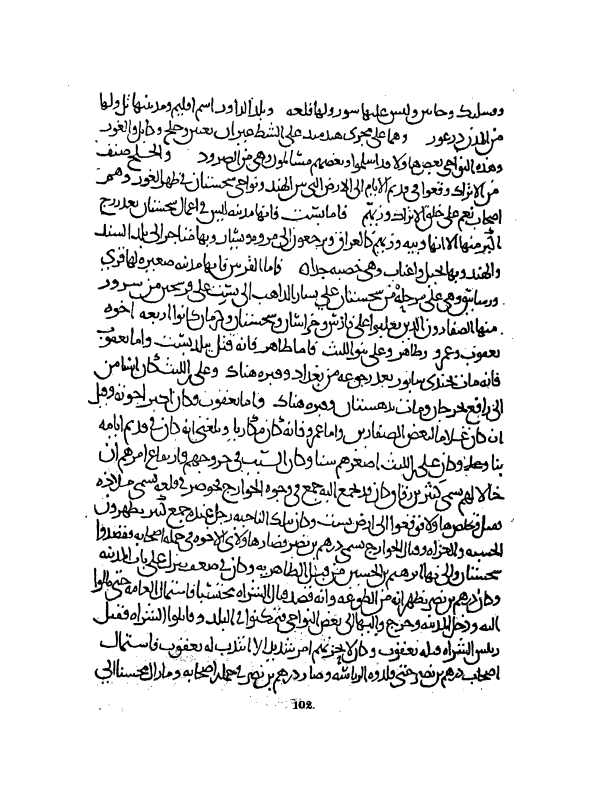 وفسلنك وخاس وليس عليها سور ولها قلعه وبلد الداور اسم اقليم ومدينتها تل ولها
من المدن درغور وهما على مجرى هندمند على الشط عنبران بغنين وخلج وكابل والغور
وهذه النواحى بعضها ولاه اسلموا وبعضهم مسالمون وهى من الصرود والخلج صنف
من الاتراك وقعوا فى قديم الايام الى الارض التى بين الهند ونواحى سجستان فى ظهر الغور وهم
اصحاب نعم على خلق الاتراك وزيهم فاما بست فانها مدينه ليس فى اعمال سجستان بعد زرنج
اكبر منها الا انها وبيه وزيهم كالعراق ويرجعون الى مروه ويسار وبها متاجر الى بلد السند
والهند وبها نخيل واعناب وهى خصبه جدا فاما القرنين فانها مدينه صغيره لها قرى
ورساتيق وهى على مرحله من سجستان على يسار الذاهب الى بست على فرسخين من سرور
منها الصفارون الذين تغلبوا على فارس وخراسان وسجستان وكرمان كانوا اربعه اخوه
يعقوب وعمرو وطاهر وعلى بنو الليث فاما طاهر فانه قتل بباب بست واما يعقوب
فانه مات بجندى سابور بعد رجوعه من بغداد وقبره هناك وعلى بن الليث كان استامن
الى رافع بجرجان ومات بدهستان وقبره هناك فاما يعقوب وكان اكبر اخوته وقيل
ان كان غلاما لبعض الصفارين واما عمرو فانه كان مكاريا وبلغنى انه كان فى قديم ايامه
بنا وعلى وكان على بن الليث اصغرهم سنا وكان السبب فى خروجهم وارتفاع امرهم ان
خالا لهم يسمى كثير بن رقاق وكان قد تجمع اليه جمع فى وجوه الخوارج فحوصر فى قلعه تسمى ملاذه
فتخلص هاولاء فوقعوا الى ارض بست وكان بتلك الناحيه رجل عنده جمع كثير يظهرون
الحسبه والغزاه وقتال الخوارج يسمى درهم بن نصر فصار هاولاى الاخوه فى جمله اصحابه فقصدوا
سجستان ووالى بها ابرهيم بن الحسين من قبل الطاهريه وكان فى ضعف فنزل على باب المدينه
وكان درهم بن نصر يظهر انه من المطوعه وانه قصد قتال الشراه محتسبا فاستمال العامه حتى مالوا
اليه ودخل المدينه وخرج واليها الى بعض النواحى فتمكنوا فى البلد وقاتلوا الشراه فقتل
رييس الشراه قتله يعقوب وكان لا يحزبهم امر شديد الا انتدب له يعقوب فاستمال
اصحاب درهم بن نصر حتى قلدوه الرياسه وصار درهم بن نصر فى جمله اصحابه وما زال محسنا الى
102.